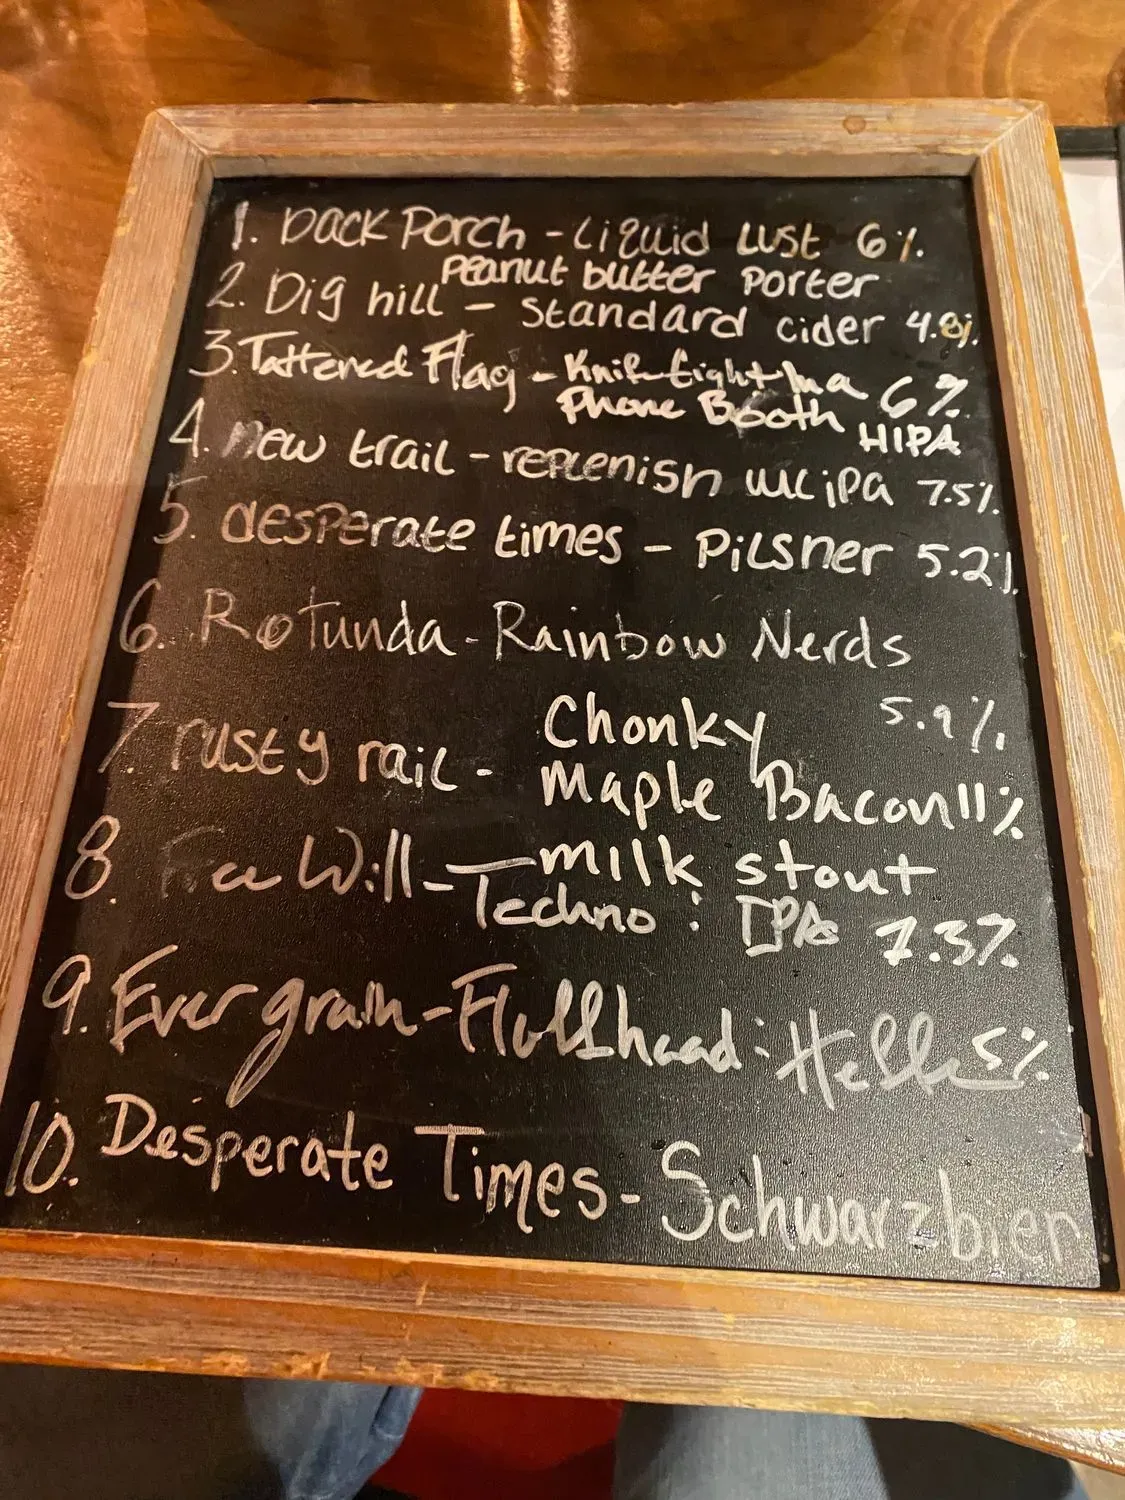 1. Back Porch - Liquid Lust 6%
Peanut butter porter
2. Dig hill - standard cider 4.8%
3. Tattered Flag - Knife fight In a 6%
Phone Booth HIPA
4. new trail - replenish WC iPA 7.5%
5. desperate times - Pilsner 5.2%
6. Rotunda - Rainbow Nerds
5.9%
7. rusty rail - Chonky
Maple Bacon 11%
milk stout
8. Free Will - Techno: IPA 7.3%
9. Ever grain - Fluffhead: Helles 5%
10. Desperate Times - Schwarzbier